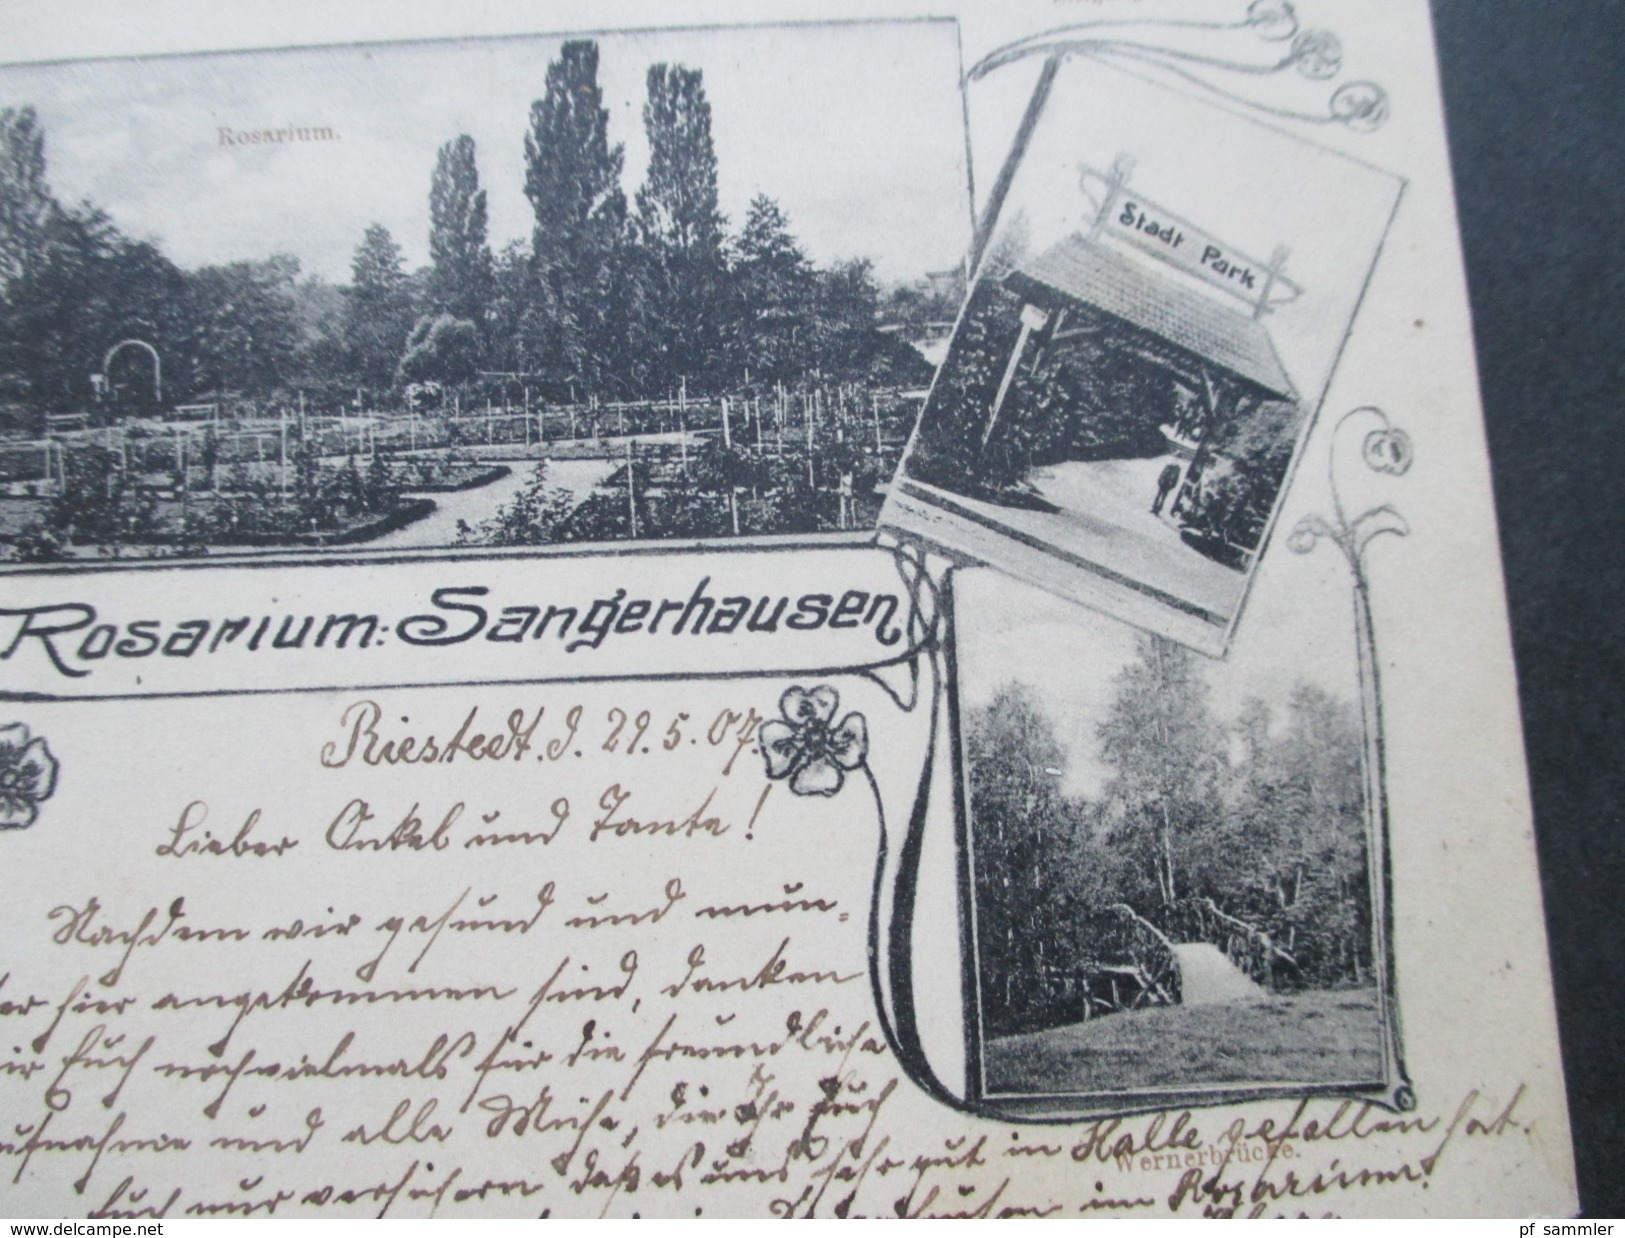 Rosarium.
Stadt Park
Rosarium: Sangerhausen
Riestedt. d. 29. 5. 07.
Lieber Onkel und Tante!
Nachdem wir gesund und mun-
ter hier angekommen sind, danken
wir Euch nochvielmals für die freundliche
Aufnahme und alle Mühe, die Ihr Euch
Euch nur versichern daß es uns sehr gut in Halle gefallen hat.
Wernerbrücke.
im Rosarium.
delcampe.net
pf_sammler